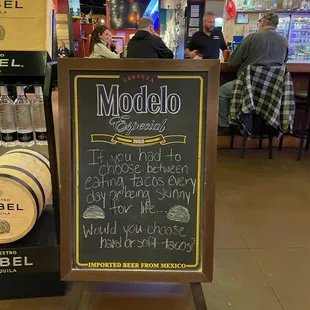 CERVEZA
Modelo
Especial
If you had to
choose between
eating tacos every
day or being skinny
for life...
Would you choose
hard or soft tacos?
IMPORTED BEER FROM MEXICO
BEL
TEQUILA
BEL
ESTRO
BEL
EQUILA